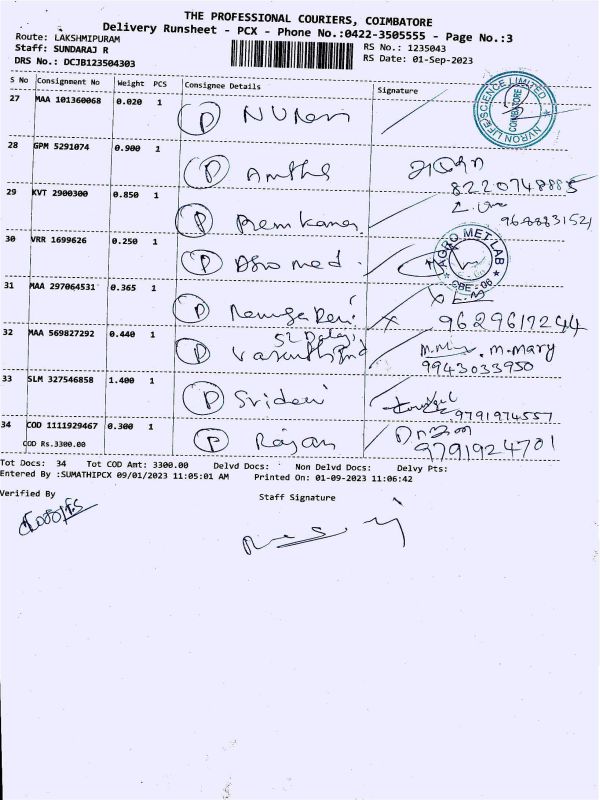 THE PROFESSIONAL COURIERS, COIMBATORE
Delivery Runsheet - PCX - Phone No.:0422-3505555 - Page No.:3
Route: LAKSHMIPURAM
RS No.: 1235043
Staff: SUNDARAJ R
RS Date: 01-Sep-2023
DRS No.: DCJB123504303
S No Consignment No Weight PCS Consignee Details Signature
NURON LIFE SCIENCE LIMITED COIMBATORE
27 MAA 101360068 0.020 1 P Nuron
28 GPM 5291074 0.900 1 P Amtha
8220748885
29 KVT 2900300 0.850 1 P Premkamar
9688831521
30 VRR 1699626 0.250 1 P Agro med.
AGRO MET LAB CBE - 06
31 MAA 297064531 0.365 1 P
9629617244
32 MAA 569827292 0.440 1 P
M. Mary
9943033950
33 SLM 327546858 1.400 1 P Sridevi
9791974557
34 COD 1111929467 0.300 1 P Rajan
COD Rs.3300.00
9791924701
Tot Docs: 34 Tot COD Amt: 3300.00 Delvd Docs: Non Delvd Docs: Delvy Pts:
Entered By :SUMATHIPCX 09/01/2023 11:05:01 AM Printed On: 01-09-2023 11:06:42
Verified By
Staff Signature